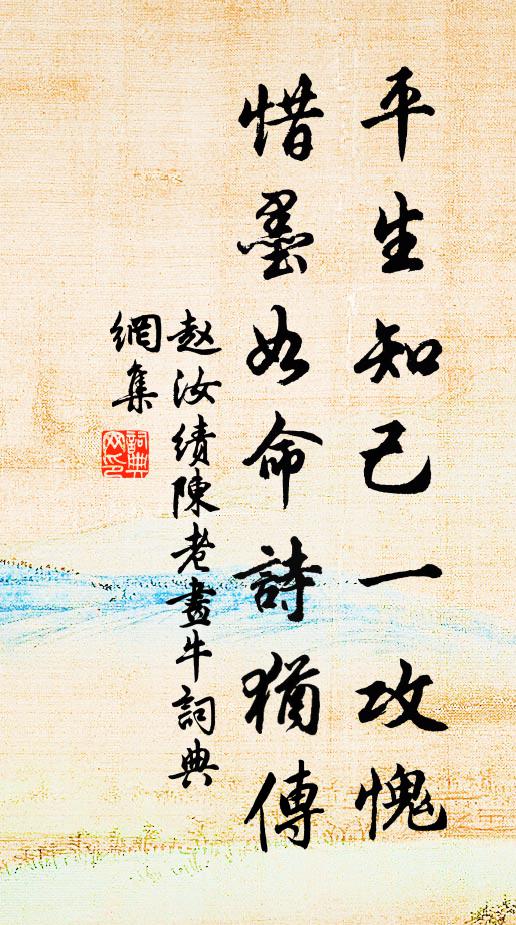 平生知己一攻愧
惜墨如命詩猶傳
赵汝績陳老畫牛詞典
網集
詞典
网印